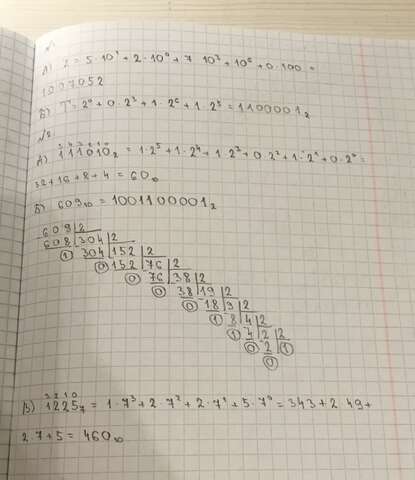 №1
А) Z = 5·10¹ + 2·10⁰ + 7·10³ + 10⁶ + 0·100 =
1007052
Б) T = 2⁰ + 0·2³ + 1·2⁶ + 1·2⁵ = 1100001₂
№2
5 4 3 2 1 0
А) 111010₂ = 1·2⁵ + 1·2⁴ + 1·2³ + 0·2² + 1·2¹ + 0·2⁰ =
32 + 16 + 8 + 4 = 60₁₀
Б) 609₁₀ = 1001100001₂
609 2
608 304 2
1 304 152 2
0 152 76 2
0 76 38 2
0 38 19 2
0 18 9 2
1 8 4 2
1 4 2 2
0 2 1
0
3 2 1 0
В) 1225₇ = 1·7³ + 2·7² + 2·7¹ + 5·7⁰ = 343 + 2·49 +
2·7 + 5 = 460₁₀